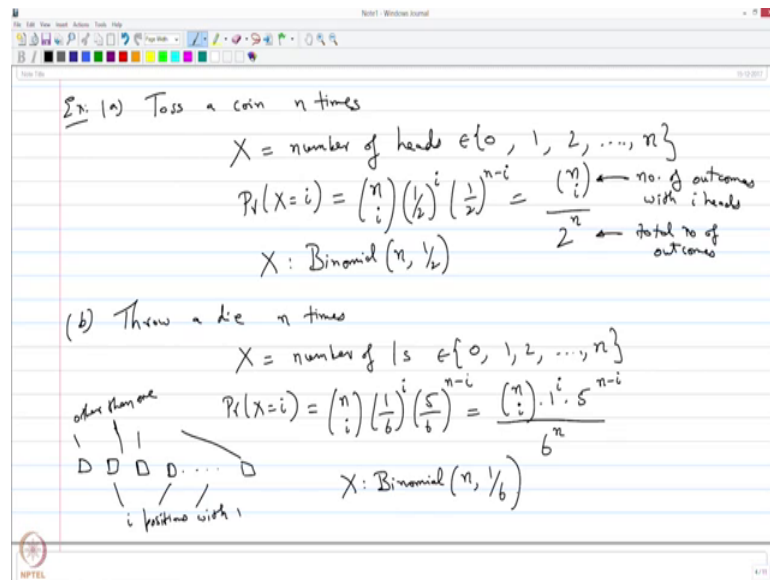 Note1 - Windows Journal
File Edit View Insert Actions Tools Help
Page Width
B I
Note Title
Ex: (a) Toss a coin n times
X = number of heads ∈ {0, 1, 2, ...., n}
Pr(X=i) = (n i) (1/2)^i (1/2)^{n-i} = (n i) / 2^n ← no. of outcomes with i heads
← total no of outcomes
X : Binomial (n, 1/2)
(b) Throw a die n times
X = number of 1s ∈ {0, 1, 2, ..., n}
Pr(X=i) = (n i) (1/6)^i (5/6)^{n-i} = (n i) · 1^i · 5^{n-i} / 6^n
other than one
i positions with 1
X : Binomial (n, 1/6)
NPTEL